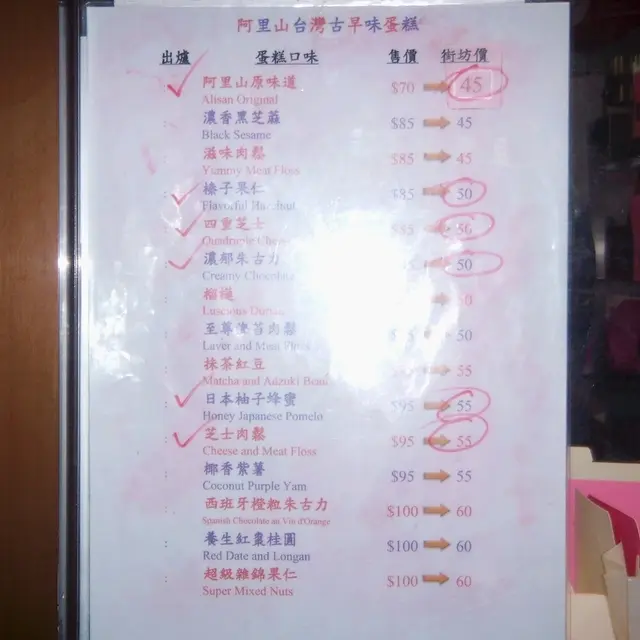 阿里山台灣古早味蛋糕
出爐 蛋糕口味 售價 街坊價
阿里山原味道 $70 45
Alisan Original
濃香黑芝蔴 $85 45
Black Sesame
滋味肉鬆 $85 45
Yummy Meat Floss
榛子果仁 $85 50
Flavorful Hazelnut
四重芝士 $85 50
Quadruple Cheese
濃郁朱古力 50
Creamy Chocolate
榴槤
Luscious Durian
至尊 肉鬆 50
Laver and Meat Floss
抹茶紅豆 55
Matcha and Adzuki Bean
日本柚子蜂蜜 $95 55
Honey Japanese Pomelo
芝士肉鬆 $95 55
Cheese and Meat Floss
椰香紫薯 $95 55
Coconut Purple Yam
西班牙橙粒朱古力 $100 60
Spanish Chocolate au Vin d'Orange
養生紅棗桂圓 $100 60
Red Date and Longan
超級雜錦果仁 $100 60
Super Mixed Nuts